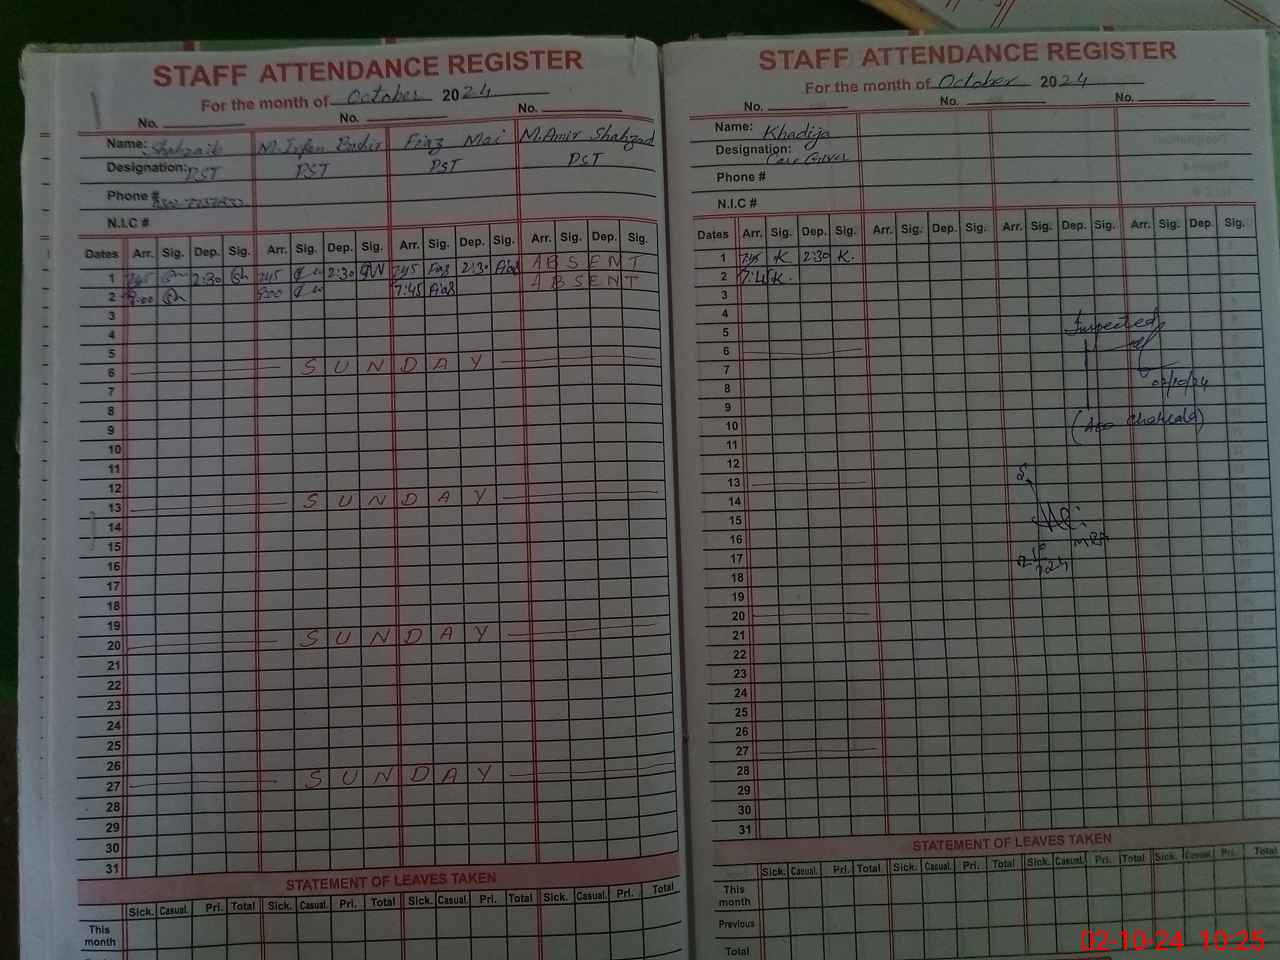 STAFF ATTENDANCE REGISTER
For the month of October 2024
No. No. No.
Name: Shahzaib M.Irfan Bashir Fiaz Mai M.Amir Shahzad
Designation: PST PST PST PST
Phone #
N.I.C #
Dates Arr. Sig. Dep. Sig. Arr. Sig. Dep. Sig. Arr. Sig. Dep. Sig. Arr. Sig. Dep. Sig.
1 7:45 Sh 2:30 Sh 7:45 2:30 7:45 Fiaz 2:30 ABSENT
2 8:00 Sh 8:00 7:45 ABSENT
3
4
5
6 SUNDAY
7
8
9
10
11
12
13 SUNDAY
14
15
16
17
18
19
20 SUNDAY
21
22
23
24
25
26
27 SUNDAY
28
29
30
31
STATEMENT OF LEAVES TAKEN
Sick. Casual. Pri. Total Sick. Casual. Pri. Total Sick. Casual. Pri. Total Sick. Casual. Pri. Total
This month
STAFF ATTENDANCE REGISTER
For the month of October 2024
No. No. No.
Name: Khadija
Designation: Care Giver
Phone #
N.I.C #
Dates Arr. Sig. Dep. Sig. Arr. Sig. Dep. Sig. Arr. Sig. Dep. Sig. Arr. Sig. Dep. Sig.
1 7:45 K 2:30 K.
2 7:45 K.
3
4
5 Inspected
6
7 02/10/24
8
9
10
11
12
13
14
15
16 MEA
17
18
19
20
21
22
23
24
25
26
27
28
29
30
31
STATEMENT OF LEAVES TAKEN
Sick. Casual. Pri. Total Sick. Casual. Pri. Total Sick. Casual. Pri. Total Sick. Casual. Pri. Total
This month
Previous
Total
02-10-24 10:25